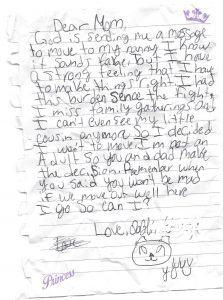 Dear Mom,
God is sending me a message
to move to my nanny I know
it sounds fake but I have
a strong feeling that I have
to make things right I had
this burden sence the fight
I miss family gatherings and
I can't even see my little
cousin anymore so I decided
I want to move I'm not an
Adult so you and dad make
the decision. Remember when
you said you won't be mad
if we move out well here
I go so can I?
Love,
Princess